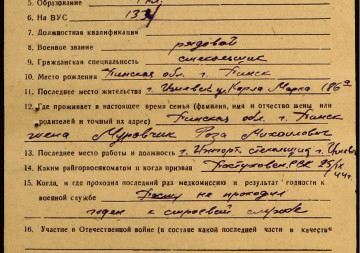 5. Образование
6. На ВУС 133
7. Должностная квалификация
8. Военное звание рядовой
9. Гражданская специальность стекольщик
10. Место рождения Пинская обл. г. Пинск
11. Последнее место жительства г. ул. Карла Маркса 186а
12. Где проживает в настоящее время семья (фамилия, имя и отчество жены или
родителей и точный их адрес) Пинская обл. г. Пинск
жена Муравчик Роза
13. Последнее место работы и должность стекольщик г.
14. Каким райгорвоенкоматом и когда призван РВК 25/IX
44г.
15. Когда, и где проходил последний раз медкомиссию и результат годности к
военной службе не проходил
годен к строевой службе
16. Участие в Отечественной войне (в составе какой последней части и в качестве